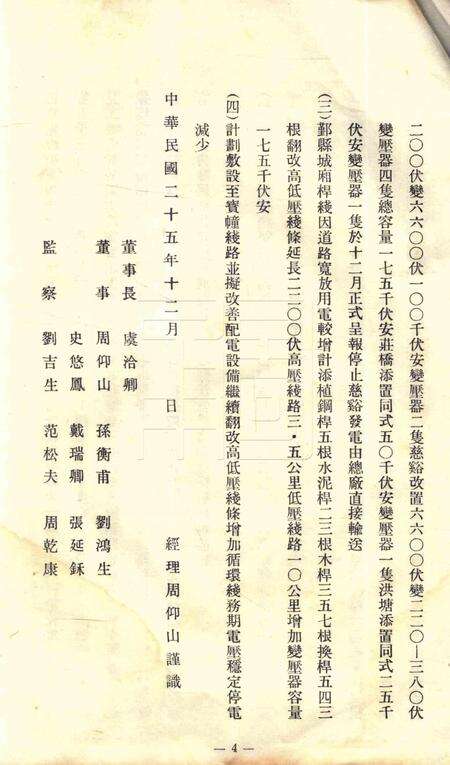 二〇〇伏變六六〇〇伏一〇〇千伏安變壓器二隻慈谿改置六六〇〇伏變二二〇—三八〇伏
變壓器四隻總容量一七五千伏安莊橋添置同式五〇千伏安變壓器一隻洪塘添置同式二五千
伏安變壓器一隻於十二月正式呈報停止慈谿發電由總廠直接輸送
(三)鄞縣城廂桿綫因道路寬放用電較增計添植鋼桿五根水泥桿二三根木桿三五七根換桿五四三
根翻改高低壓綫條延長二二〇〇伏高壓綫路三·五公里低壓綫路一〇公里增加變壓器容量
一七五千伏安
(四)計劃敷設至寶幢綫路並擬改善配電設備繼續翻改高低壓綫條增加循環綫務期電壓穩定停電
減少
中華民國二十五年十二月 日 經理周仰山謹識
董事長 虞洽卿
董事 周仰山 孫衡甫 劉鴻生
史悠鳳 戴瑞卿 張延鉌
監察 劉吉生 范松夫 周乾康
— 4 —